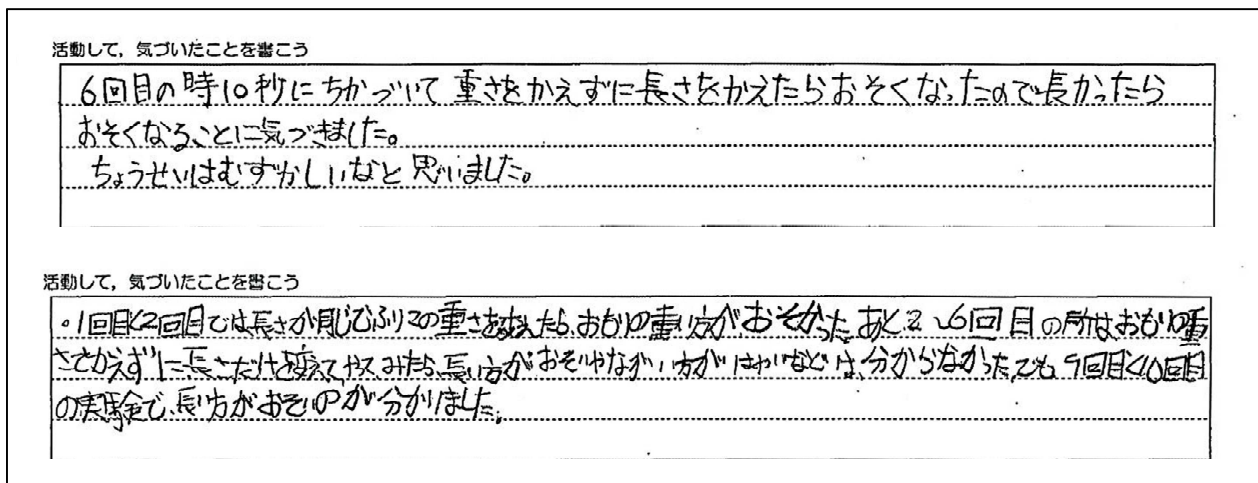 活動して，気づいたことを書こう
6回目の時10秒にちかづいて重さをかえずに長さをかえたらおそくなったので長かったら
おそくなることに気づきました。
ちょうせいはむずかしいなと思いました。
活動して，気づいたことを書こう
・1回目と2回目では長さが同じでふりこの重さを変えたら、おもりの重い方がおそかった。あと2〜6回目の所はおもりの重
さをかえずに長さだけを変えてやってみたら、長い方がおそいやながい方がはやいなどは、分からなかった。でも、9回目と10回目
の実験で、長い方がおそいのが分かりました。